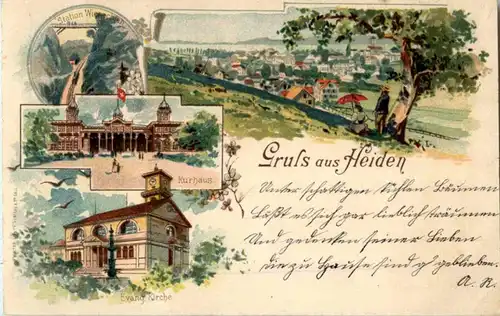 Station
Gruß aus Heiden
Kurhaus
Evang. Kirche
Unter schattigen kühlen Bäumen
Läßt es sich gar lieblich träumen
Und gedenken seiner Lieben
die zu Hause sind geblieben.
A. R.